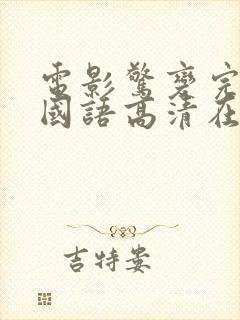 電影驚變完
國語高清在
吉特婁